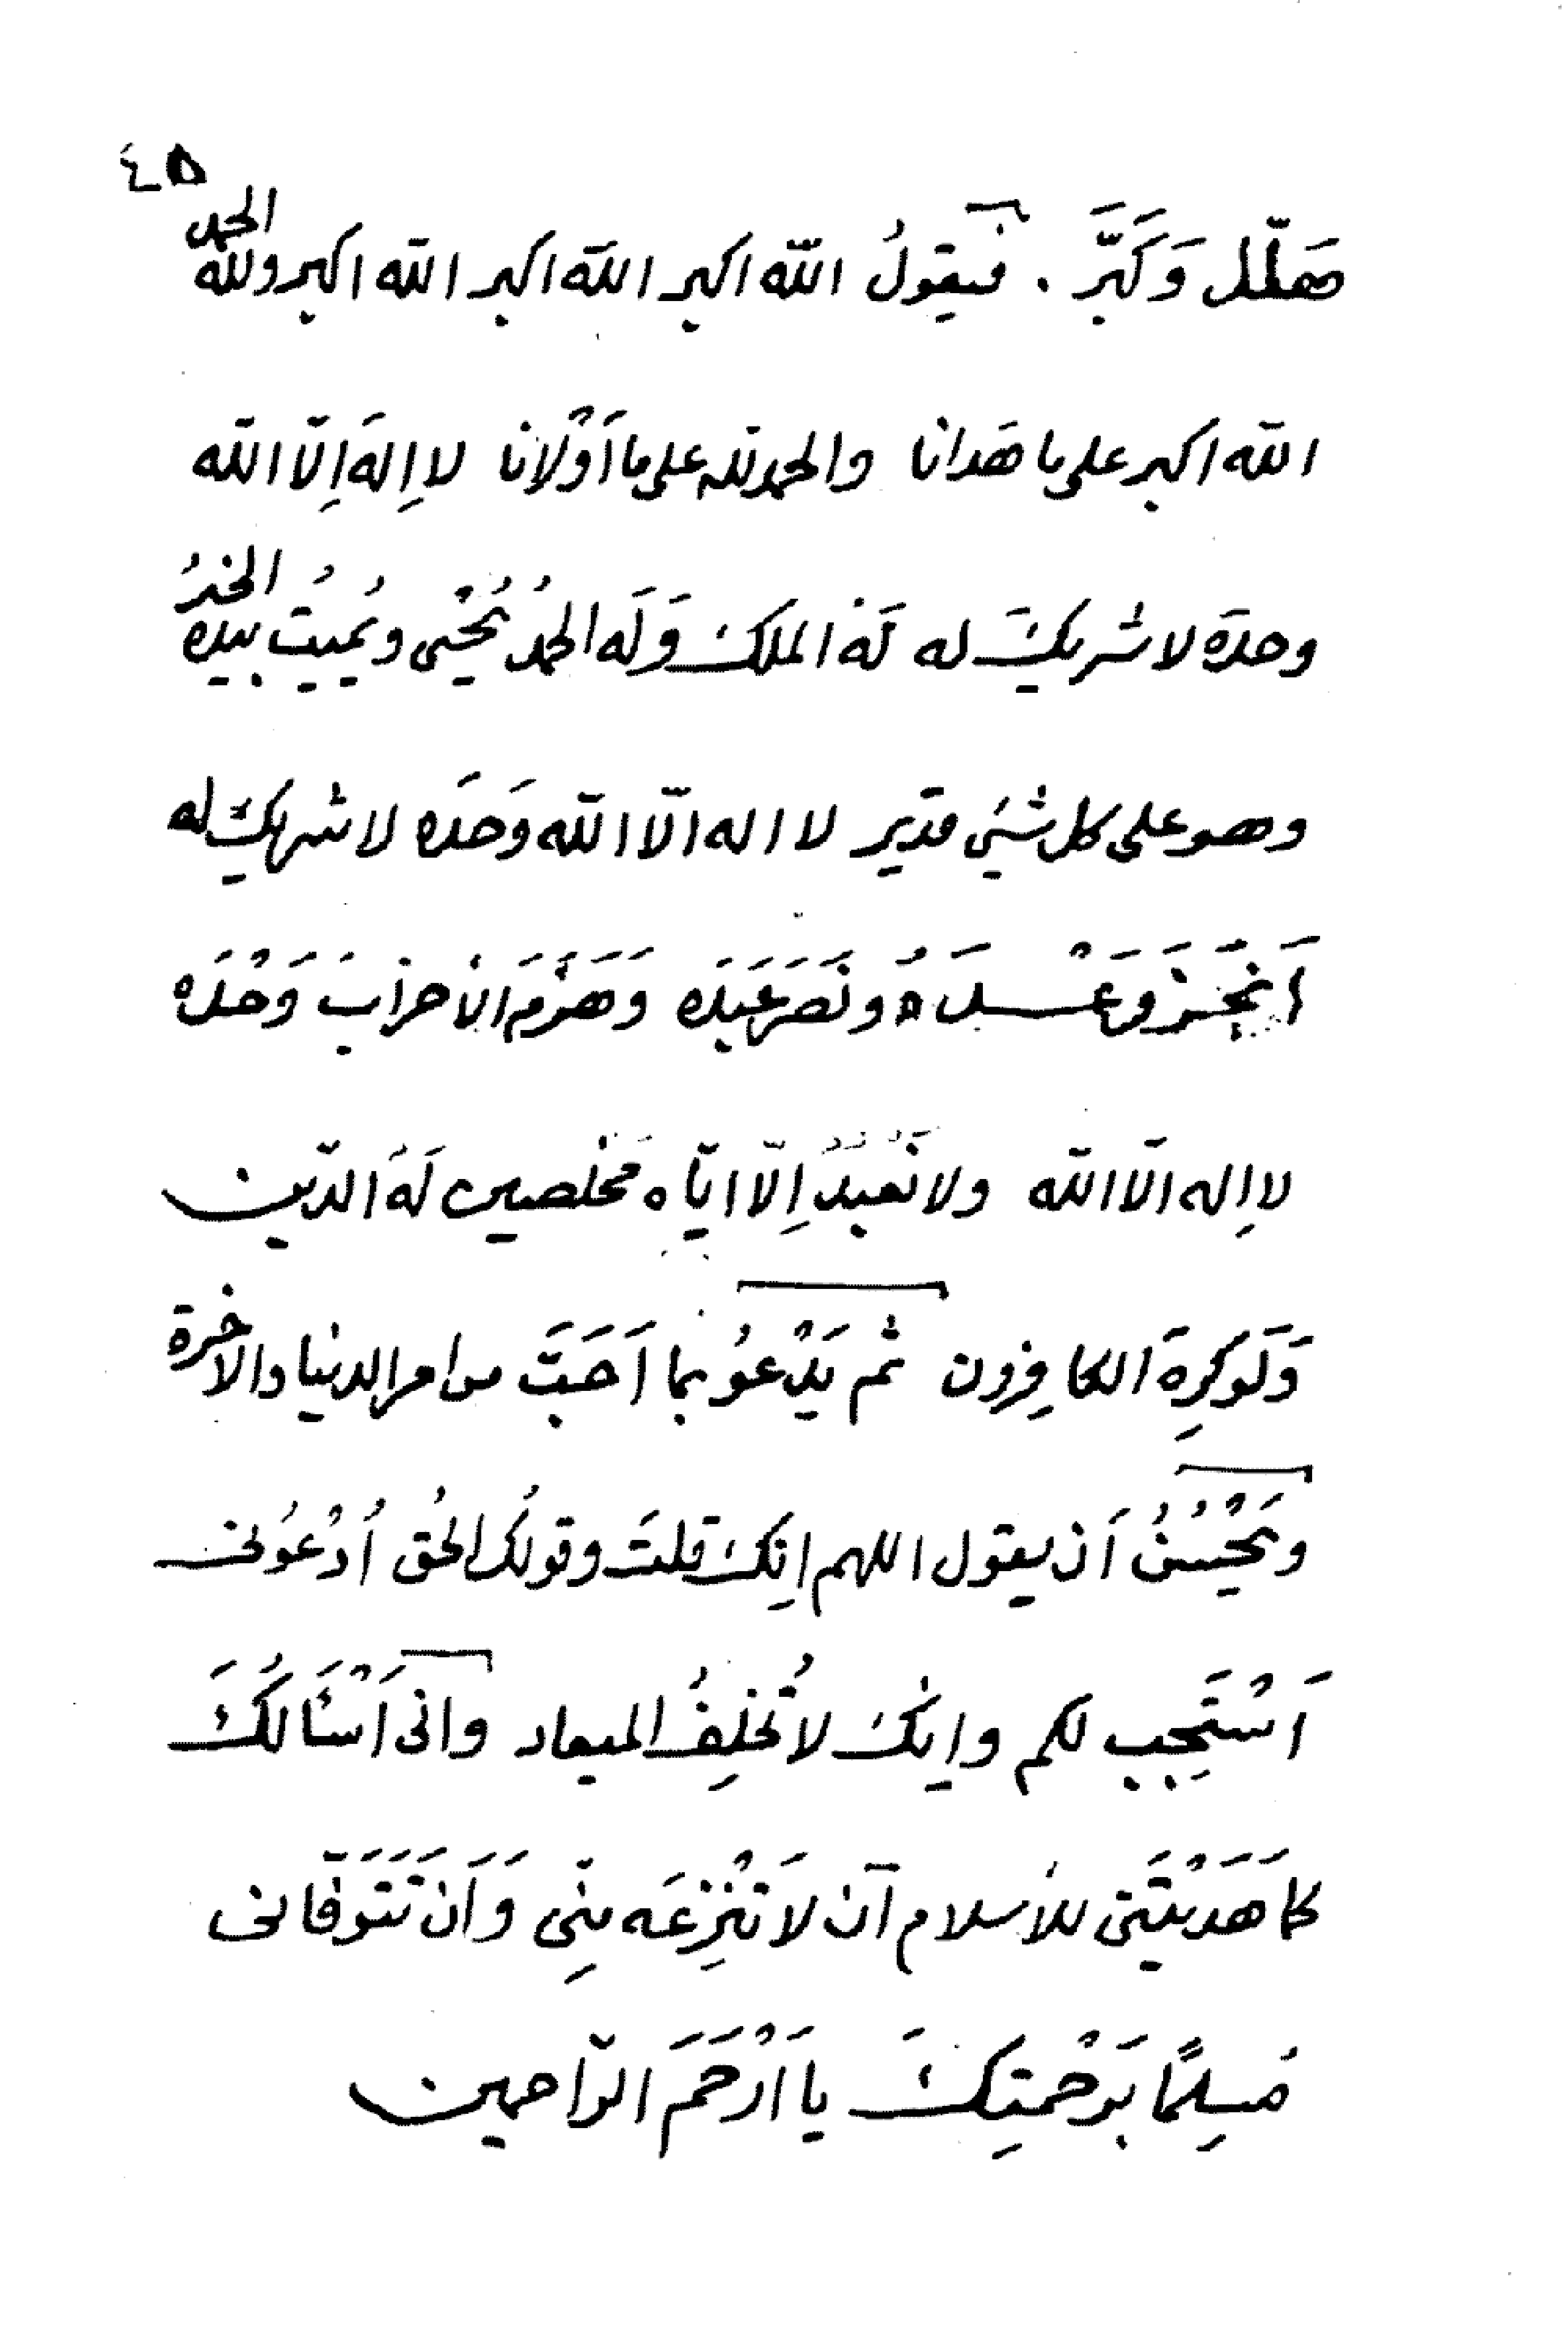 ٤٥
هَلّل وَكَبَّرَ . فيقولُ اللّه اكبر اللّه اكبر اللّه اكبر وللّه الحمد
اللّه اكبر على ما هَدانا والحمد للّه على ما اَوْلانا لا اِلهَ اِلّا اللّه
وحدَه لا شريكَ له لَهُ الملكُ وَلَه الحمدُ يُحْيى ويُميتُ بيده الخيرُ
وهو على كل شيئ قدير لا اله الّا اللّه وَحدَه لا شريكَ له
اَنجَزَ وَعْدَهُ ونَصَرَ عَبدَه وَهَزَمَ الأحزابَ وَحْدَه
لا اِله الّا اللّه ولا نَعْبُدُ اِلّا ايّاه مخلصين لَهُ الدّين
وَلَو كَرِهَ الكافِرون ثم يَدْعُو بما اَحَبَّ من امر الدنيا والاخرة
ويَحْسُنُ اَن يقول اللهم اِنّكَ قلتَ وقولُك الحُق اُدْعُونى
اَسْتَجِب لكم وانّكَ لا تُخلِفُ الميعاد وانى اَسْئَالُكَ
كما هَدَيْتَنى للأسلام اَن لاَ تَنْزِعَه مِنّى وَاَن تَتَوَفّانى
مُسلِمًا بِرَحْمتِكَ يا اَرْحَمَ الرّاحمين